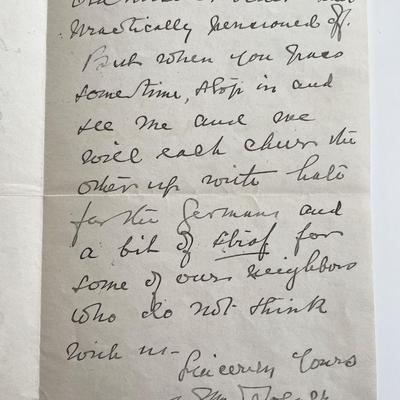 practically pensioned off.
But when you pass
sometime, stop in and
see me and we
will each cheer the
other up with hate
for the Germans and
a bit of straf for
some of our neighbors
who do not think
with us—
Sincerely Yours